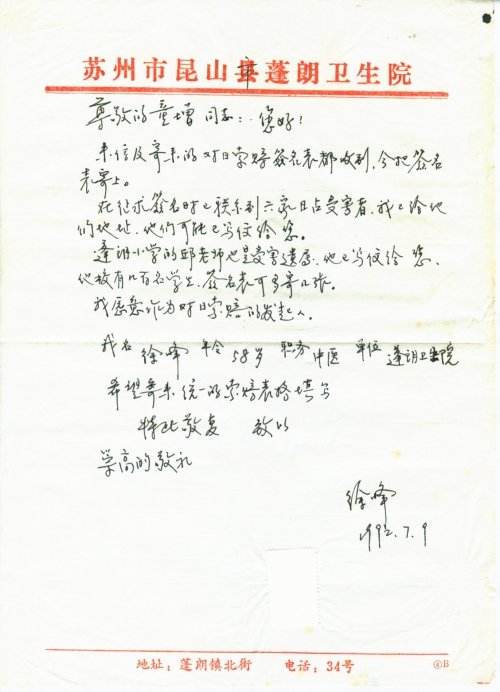 苏州市昆山市蓬朗卫生院
尊敬的童增同志:您好!
来信及寄来的对日索赔签名表都收到,今把签名
表寄上。
在征求签名时已联系到六家日占受害者,我已给他
们地址,他们可能已写信给您。
蓬朗小学的邱老师也是受害遗属,他已写信给您,
他校有几百名学生,签名表可多寄几张。
我愿意作为对日索赔的发起人。
我名 徐峰 年令58岁 职务中医 单位蓬朗卫生院
希望寄来统一的索赔表格填写
特此敬复 致以
崇高的敬礼
徐峰
1992.7.9
地址:蓬朗镇北街 电话:34号
④B